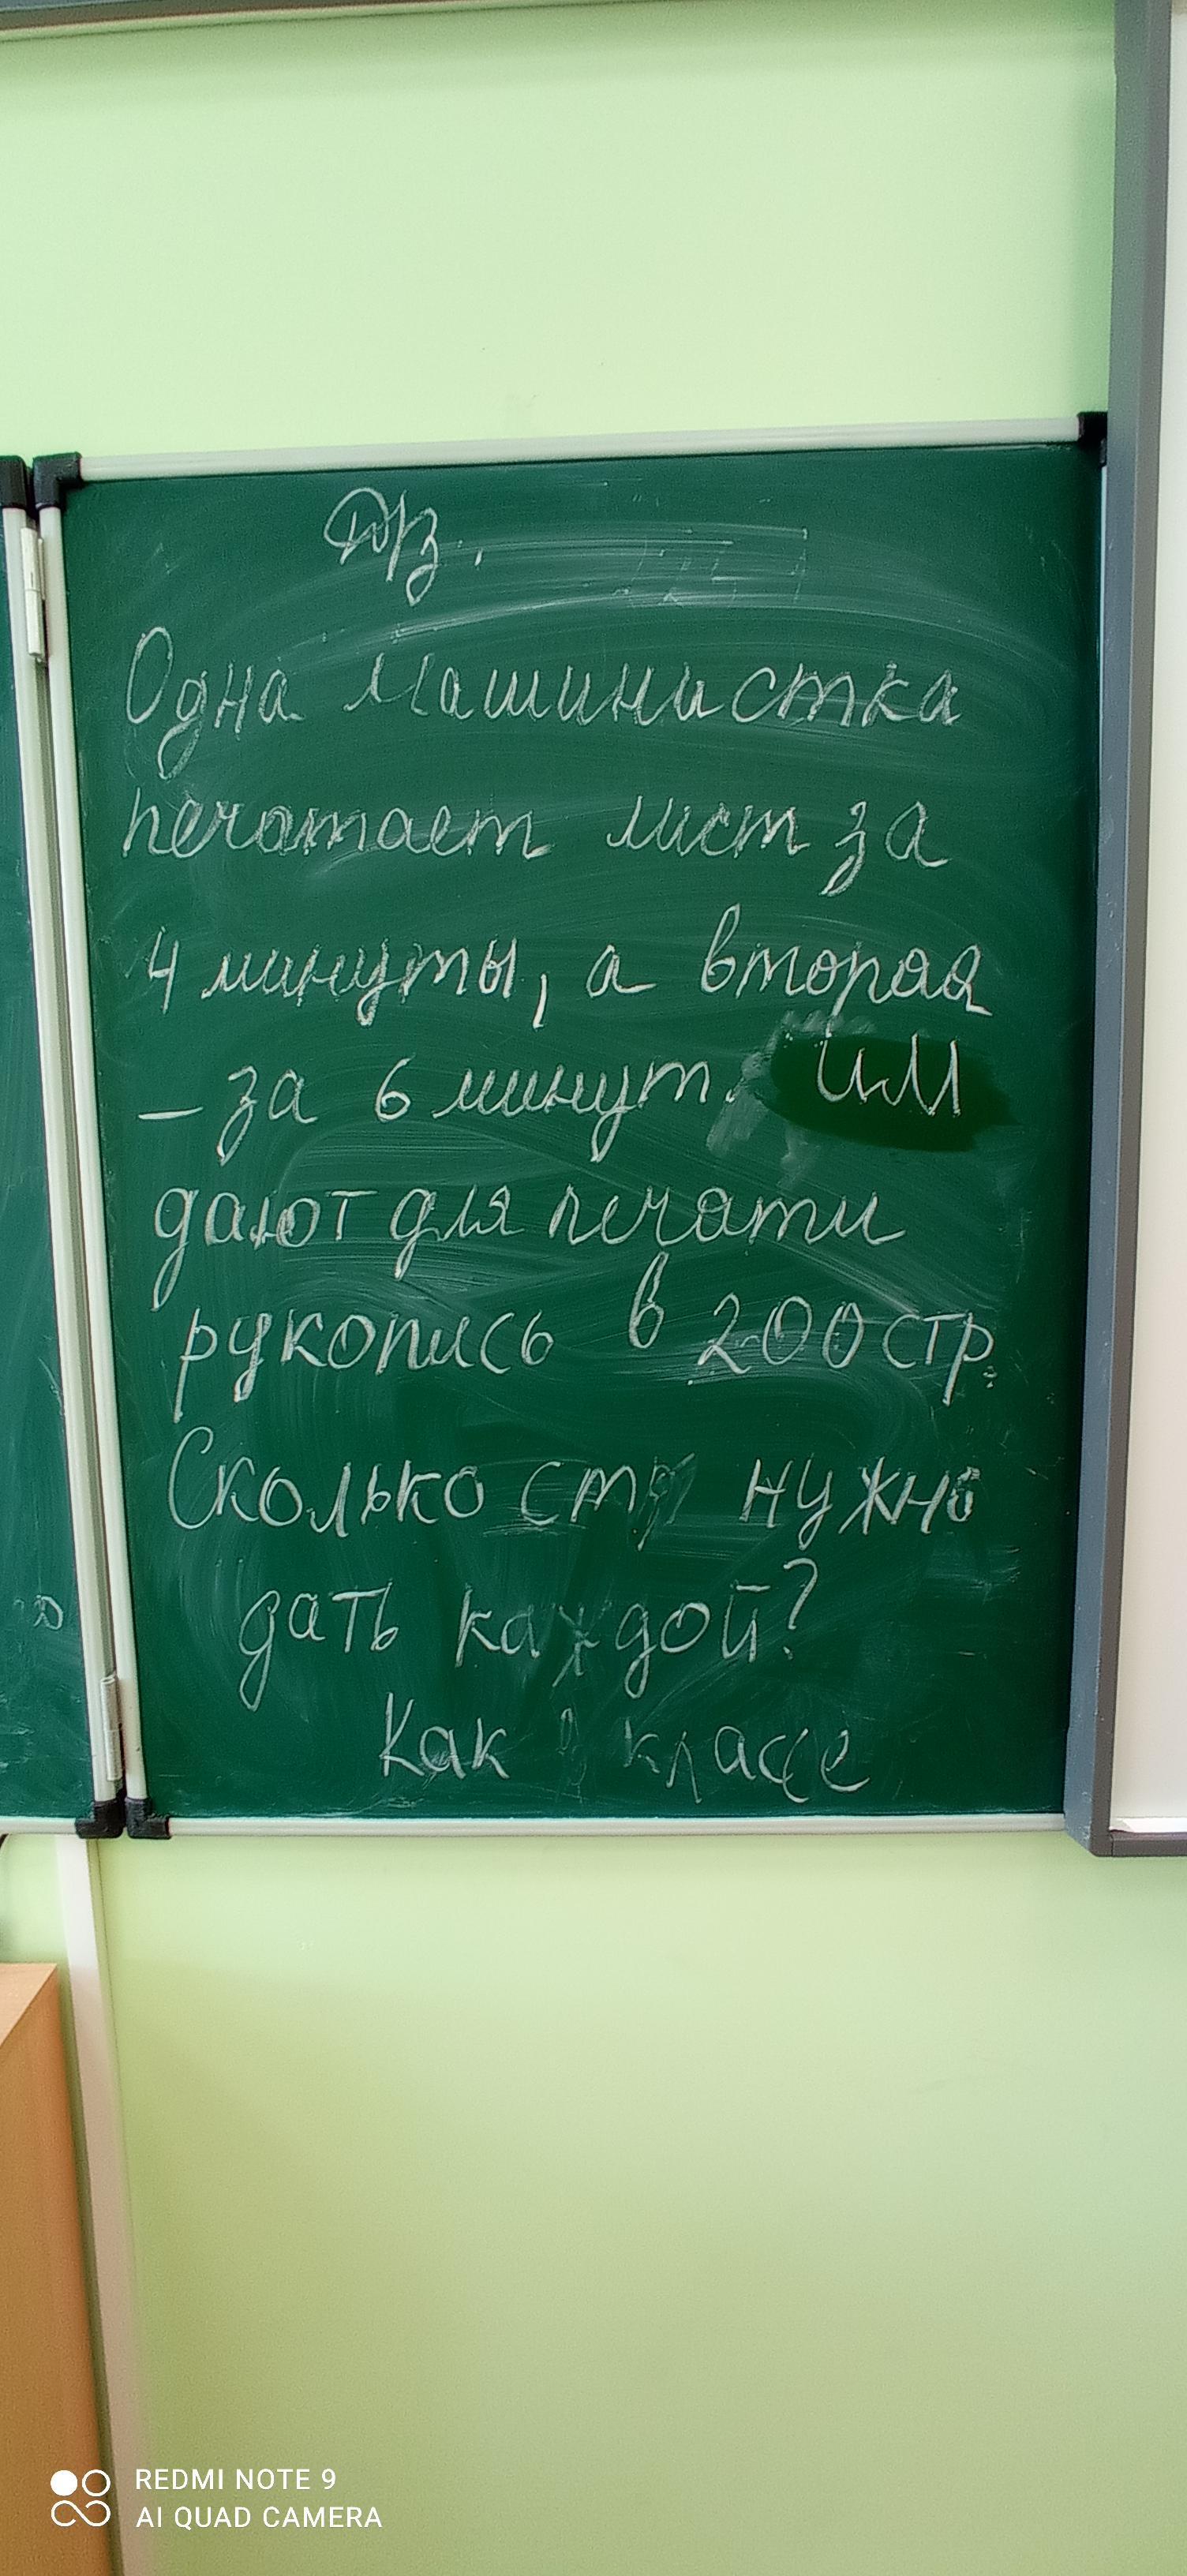 Д/з.
Одна машинистка
печатает лист за
4 минуты, а вторая
– за 6 минут. Им
дают для печати
рукопись в 200 стр.
Сколько стр нужно
дать каждой?
Как в классе
REDMI NOTE 9
AI QUAD CAMERA